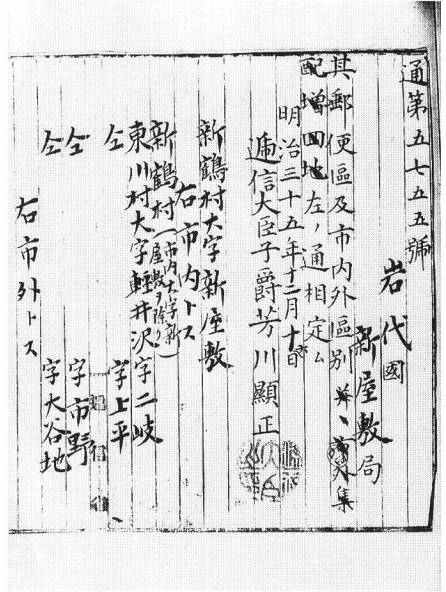 通第五七五五號
岩代國
新屋敷局
其郵便區及市内外區別
集
配増回地左ノ通相定ム
明治三十五年十二月十日
遞信大臣子爵芳川顯正
新鶴村大字新屋敷
右市内トス
新鶴村(市内大字新屋敷ヲ除ク)
東川村大字輕井沢字二岐
仝 字上平
仝 字市野
仝 字大谷地
右市外トス